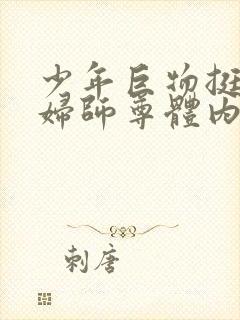 少年巨物挺
婦師尊體内
刺唐